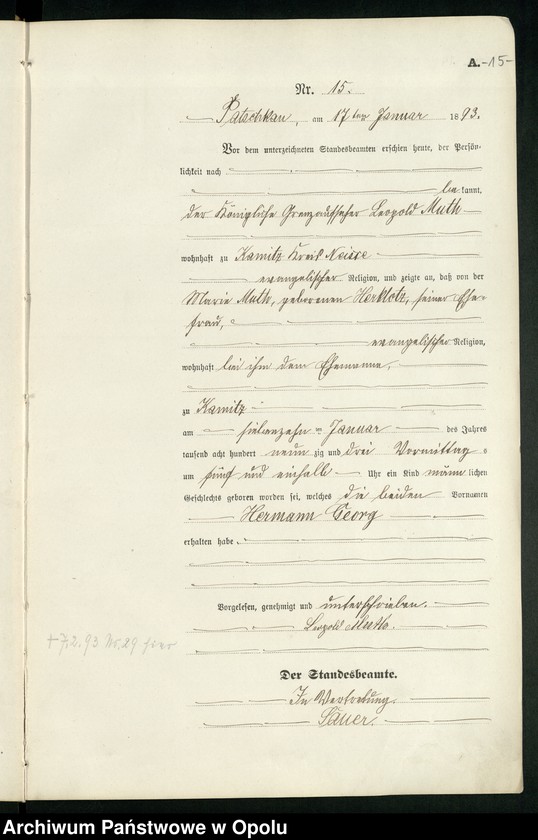 A.-15-
Nr. 15.
Patschkau, am 17ten Januar 1893.
Vor dem unterzeichneten Standesbeamten erschien heute, der Persön-
lichkeit nach
bekannt,
der Königliche Grenzaufseher Leopold Muth
wohnhaft zu Kamitz Kreis Neisse
evangelischer Religion, und zeigte an, daß von der
Marie Muth, geborenen Herklotz, seiner Ehe-
frau,
evangelischer Religion,
wohnhaft bei ihm dem Ehemanne,
zu Kamitz
am siebenzehnten Januar des Jahres
tausend acht hundert neunzig und drei Vormittag s
um fünf und einhalb Uhr ein Kind männlichen
Geschlechts geboren worden sei, welches die beiden Vornamen
Hermann Georg
erhalten habe.
Vorgelesen, genehmigt und unterschrieben.
Leopold Muth.
+ 7.2.93 No. 29 hier
Der Standesbeamte.
In Vertretung.
Sauer.
Archiwum Państwowe w Opolu